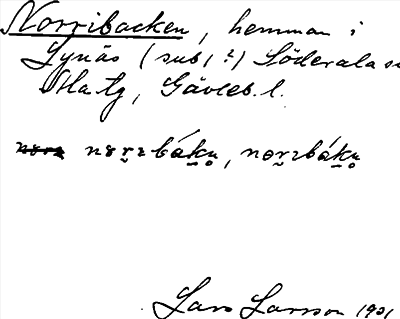 Norribacken, hemman i
Lynäs (sub, ?) Söderala sn
Ala tg, Gävleb. l.
norɪbákn̥, norɪbákn̥
Lars Larsson 1901